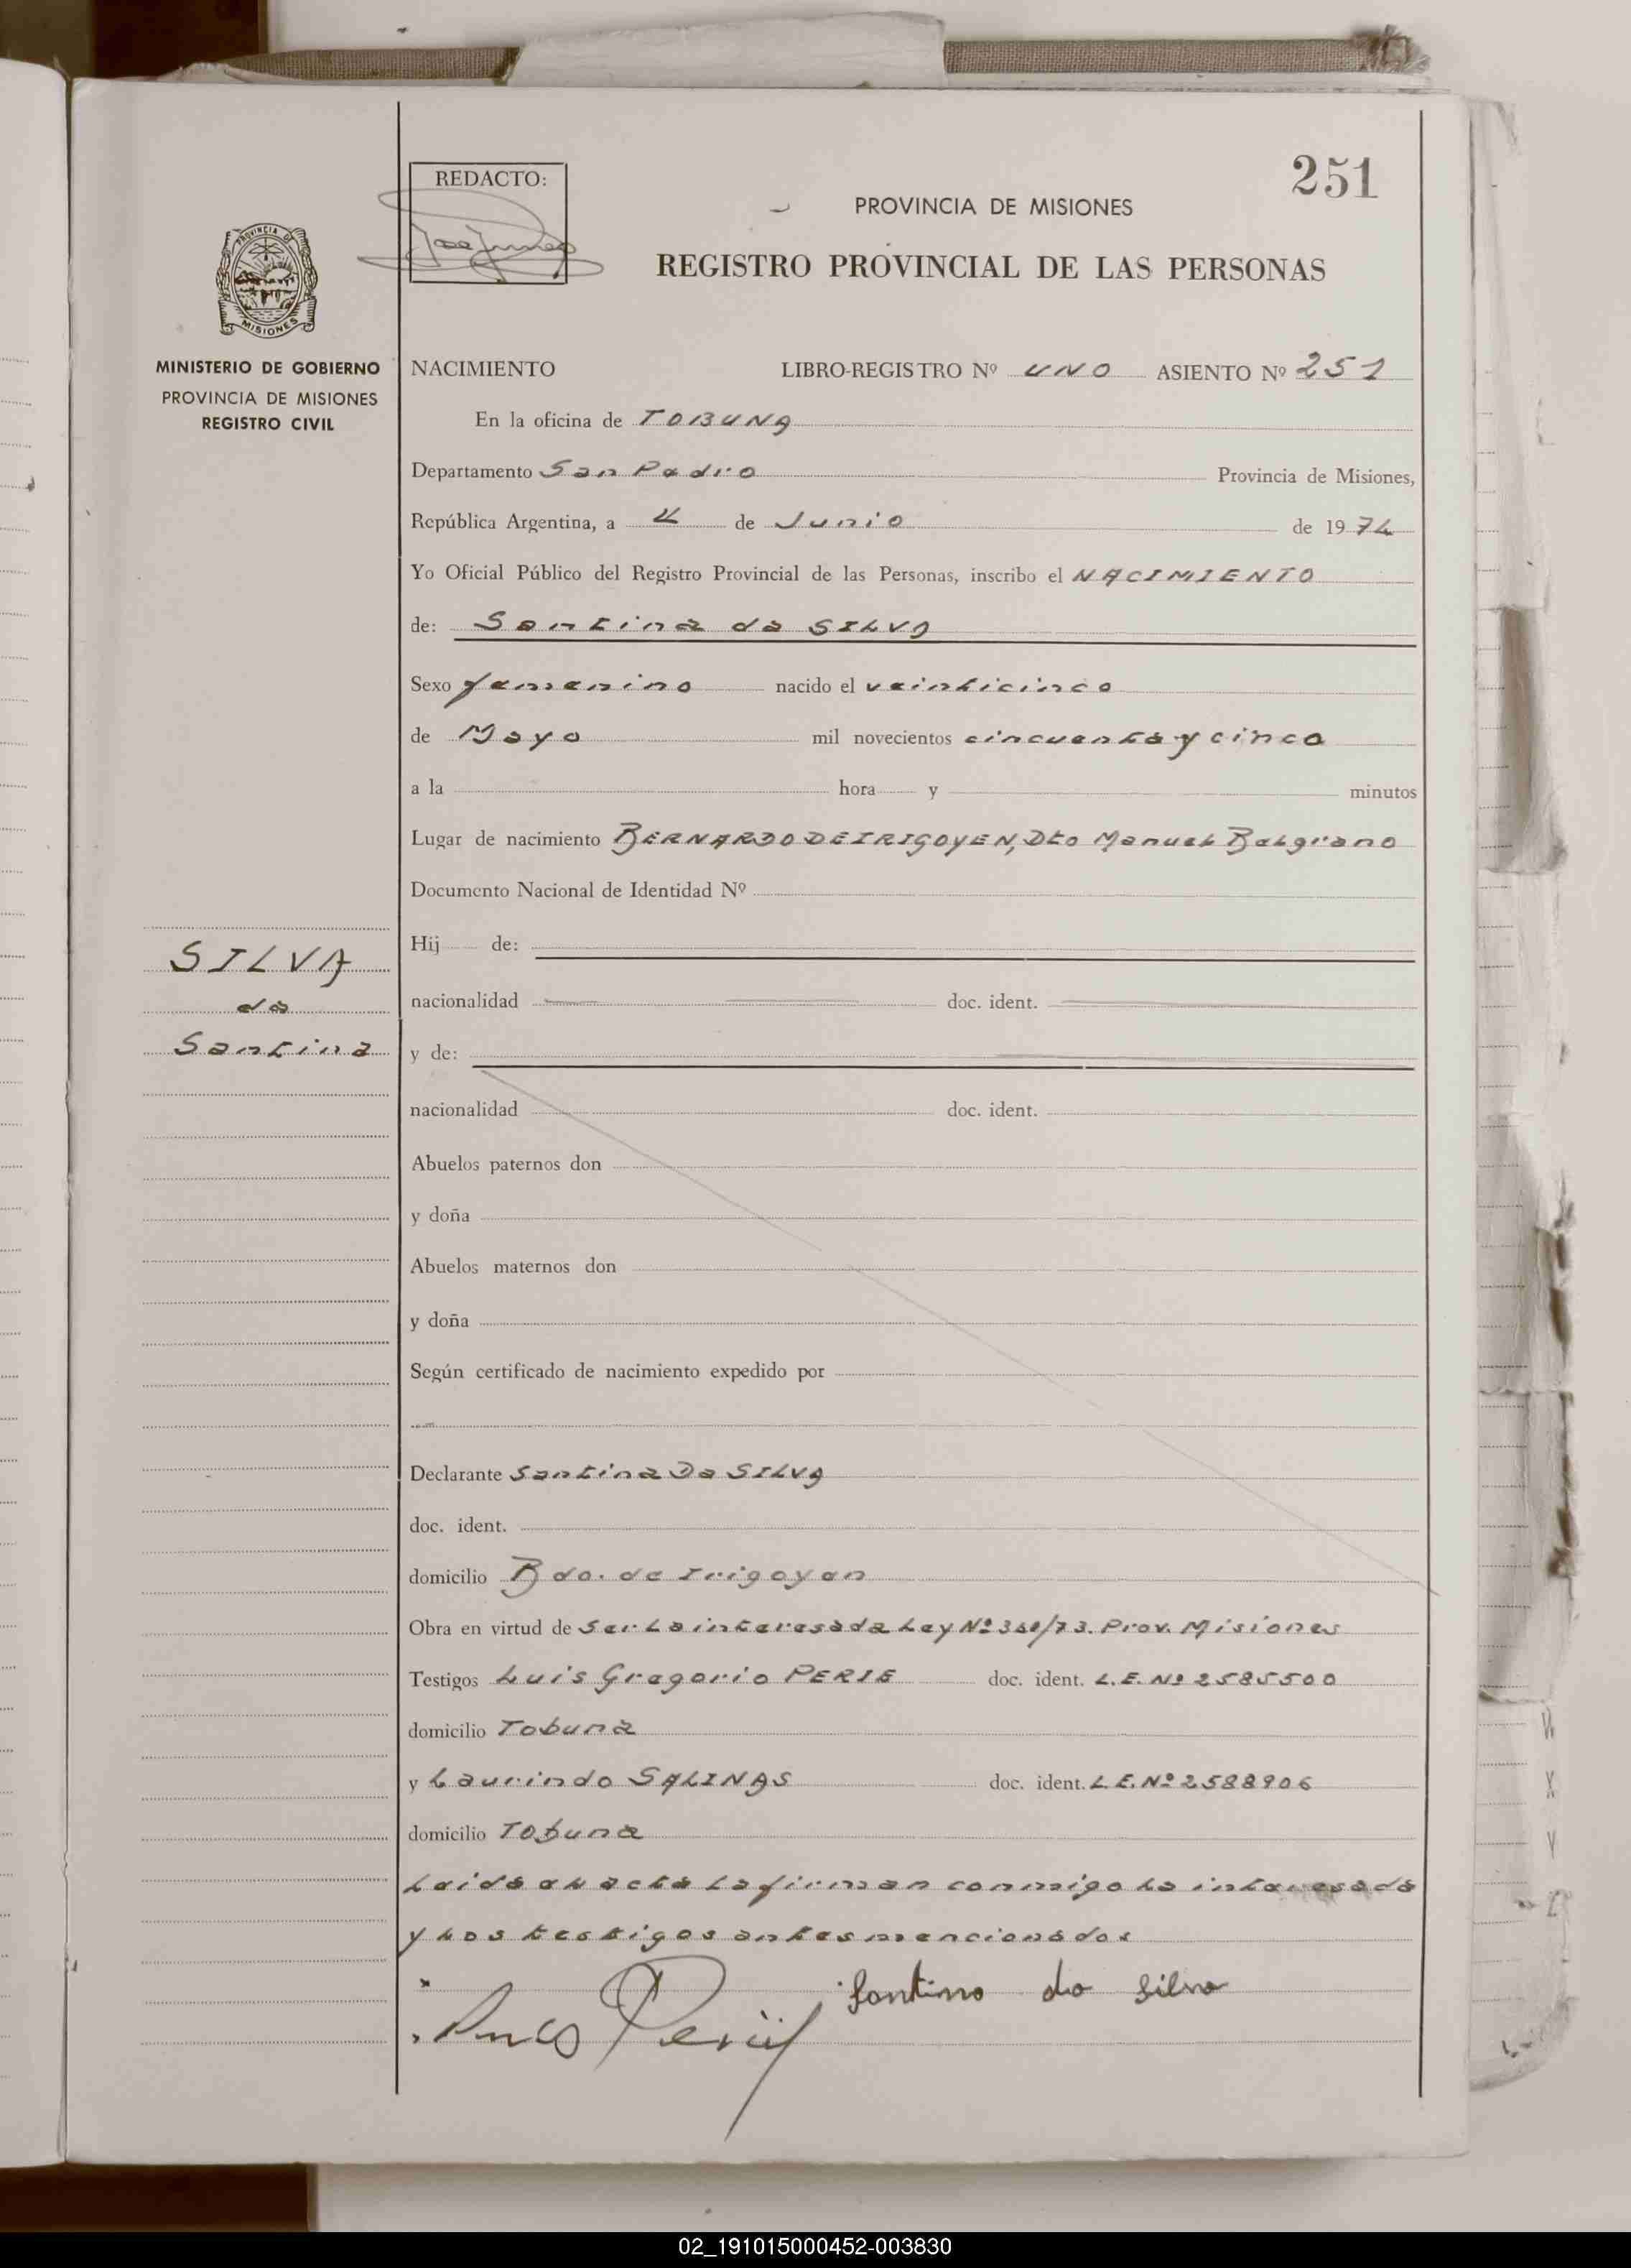 251
REDACTO:
PROVINCIA DE MISIONES
REGISTRO PROVINCIAL DE LAS PERSONAS
PROVINCIA DE
MISIONES
MINISTERIO DE GOBIERNO
PROVINCIA DE MISIONES
REGISTRO CIVIL
NACIMIENTO LIBRO-REGISTRO Nº UNO ASIENTO Nº 251
En la oficina de TOBUNA
Departamento San Pedro Provincia de Misiones,
República Argentina, a 4 de Junio de 1974
Yo Oficial Público del Registro Provincial de las Personas, inscribo el NACIMIENTO
de: Santina da SILVA
Sexo femenino nacido el veinticinco
de Mayo mil novecientos cincuenta y cinco
a la hora y minutos
Lugar de nacimiento BERNARDO DE IRIGOYEN, Dto Manuel Belgrano
Documento Nacional de Identidad Nº
SILVA
da
Santina
Hij de:
nacionalidad doc. ident.
y de:
nacionalidad doc. ident.
Abuelos paternos don
y doña
Abuelos maternos don
y doña
Según certificado de nacimiento expedido por
Declarante Santina Da SILVA
doc. ident.
domicilio Bdo. de Irigoyen
Obra en virtud de Ser La interesada Ley Nº 360/73. Prov. Misiones
Testigos Luis Gregorio PERIE doc. ident. L.E. Nº 2585500
domicilio Tobuna
y Laurindo SALINAS doc. ident. L.E. Nº 2588906
domicilio Tobuna
Leida el acta la firman conmigo la interesada
y los testigos antes mencionados
Santina da Silva
02_191015000452-003830